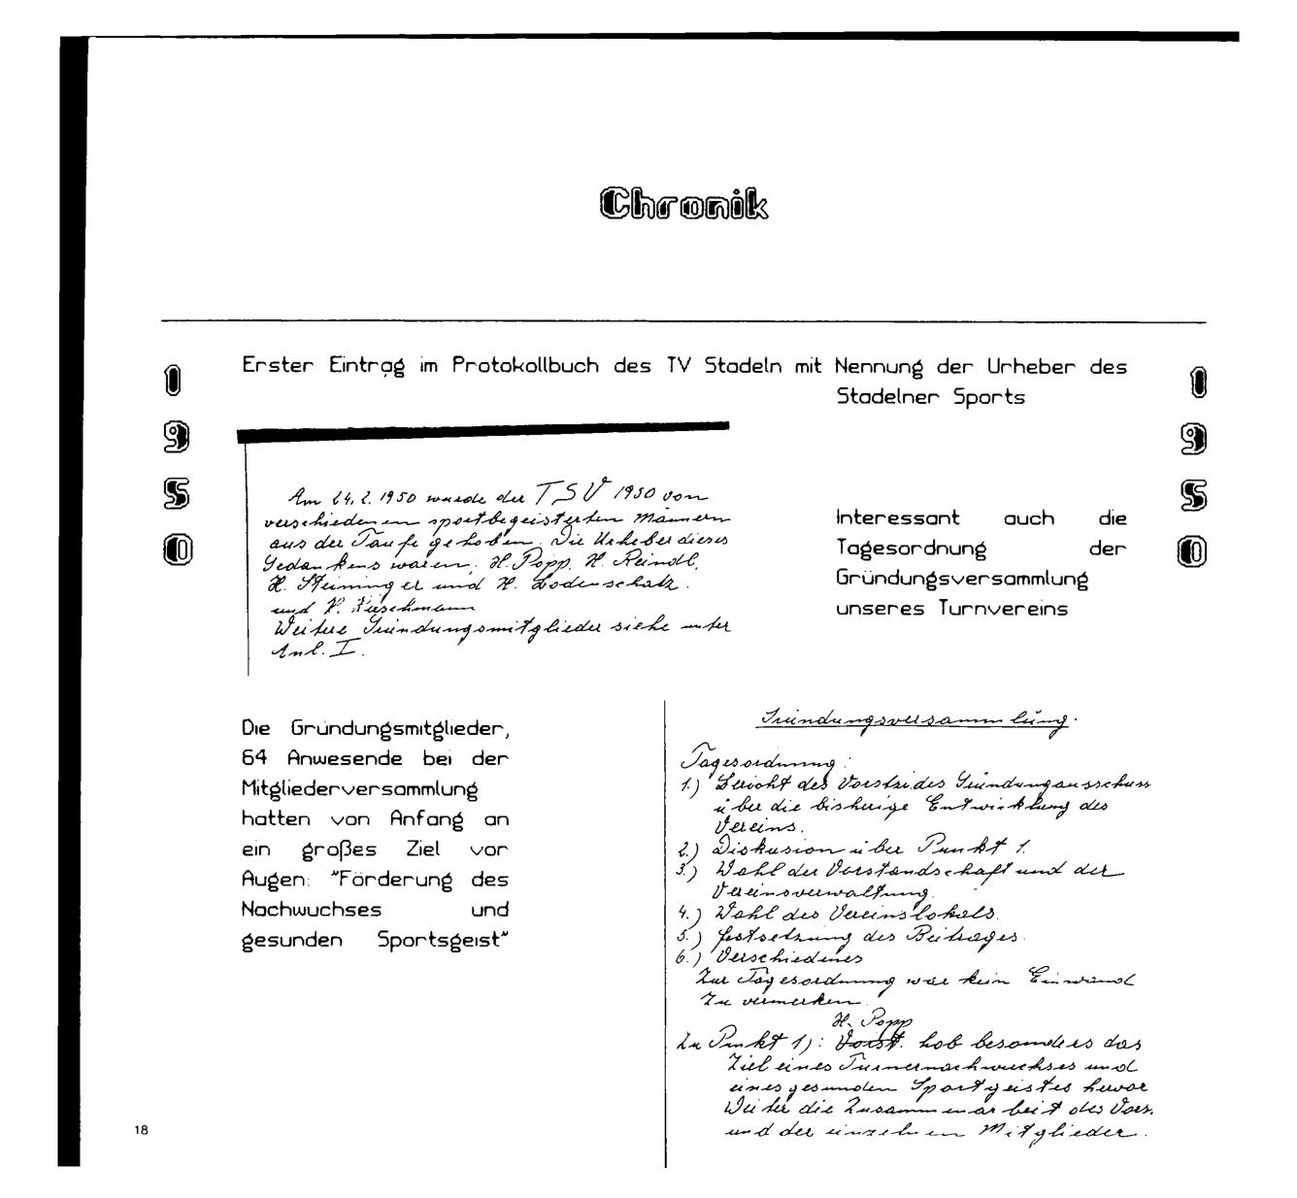 Chronik
1950
1950
Erster Eintrag im Protokollbuch des TV Stadeln mit Nennung der Urheber des
Stadelner Sports
Am 24.2.1950 wurde der TSV 1950 von
verschiedenen sportbegeisterten Männern
aus der Taufe gehoben. Die Urheber dieses
Gedankens waren, H. Popp, H. Reindl,
H. Steininger und H. Bodenschatz.
und K.
Weitere Gründungsmitglieder siehe unter
Anl. I.
Interessant auch die
Tagesordnung der
Gründungsversammlung
unseres Turnvereins
Die Gründungsmitglieder,
64 Anwesende bei der
Mitgliederversammlung
hatten von Anfang an
ein großes Ziel vor
Augen: "Förderung des
Nachwuchses und
gesunden Sportsgeist"
Gründungsversammlung.
Tagesordnung:
1.) Bericht des Gründungausschuss
über die bisherige Entwicklung des
Vereins.
2.) Diskusion über Punkt 1.
3.) Wahl der Vorstandschaft und der
Vereinsverwaltung.
4.) Wahl des Vereinslokals.
5.) Festsetzung des Beitrages.
6.) Verschiedenes
Zur Tagesordnung war kein Einwand
zu vermerken.
H. Popp
Zu Punkt 1): Vorst. hob besonders das
Ziel eines Turnernachwuchses und
eines gesunden Sportgeistes hervor
Weiter die Zusammenarbeit des Vors.
und der einzelnen Mitglieder.
18